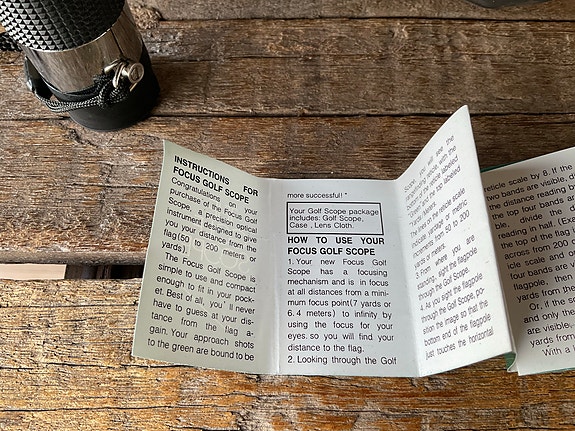 INSTRUCTIONS FOR
FOCUS GOLF SCOPE
Congratulations on your
purchase of the Focus Golf
Scope, a precision optical
instrument designed to give
you your distance from the
flag(50 to 200 meters or
yards).
The Focus Golf Scope is
simple to use and compact
enough to fit in your pock-
et. Best of all, you'll never
have to guess at your dis-
tance from the flag a-
gain. Your approach shots
to the green are bound to be
more successful! "
Your Golf Scope package
includes: Golf Scope,
Case , Lens Cloth.
HOW TO USE YOUR
FOCUS GOLF SCOPE
1. Your new Focus Golf
Scope has a focusing
mechanism and is in focus
at all distances from a mini-
mum focus point(7 yards or
6. 4 meters) to infinity by
using the focus for your
eyes. so you will find your
distance to the flag.
2. Looking through the Golf
Scope, you will see the
reticle, with the
bottom of the reticle labeled
"Green" and the top labeled
"Yards / Meters".
The lines on the reticle scale
indicate yardage or metric
increments from 50 to 200
yards or meters.
3. From where you are
standing, sight the flagpole
through the Golf Scope.
4. As you sight the flagpole
through the Golf Scope, po-
sition the image so that the
bottom end of the flagpole
just touches the horizontal
reticle scale by 8. If the
two bands are visible, d
the distance reading by
the top four bands ar
divide the d
reading in half. (Exam
the top of the flag
across from 200 o
icle scale and o
four bands are v
flagpole, then
yards from the
Or, if the so
and only the
are visible,
yards from
With a